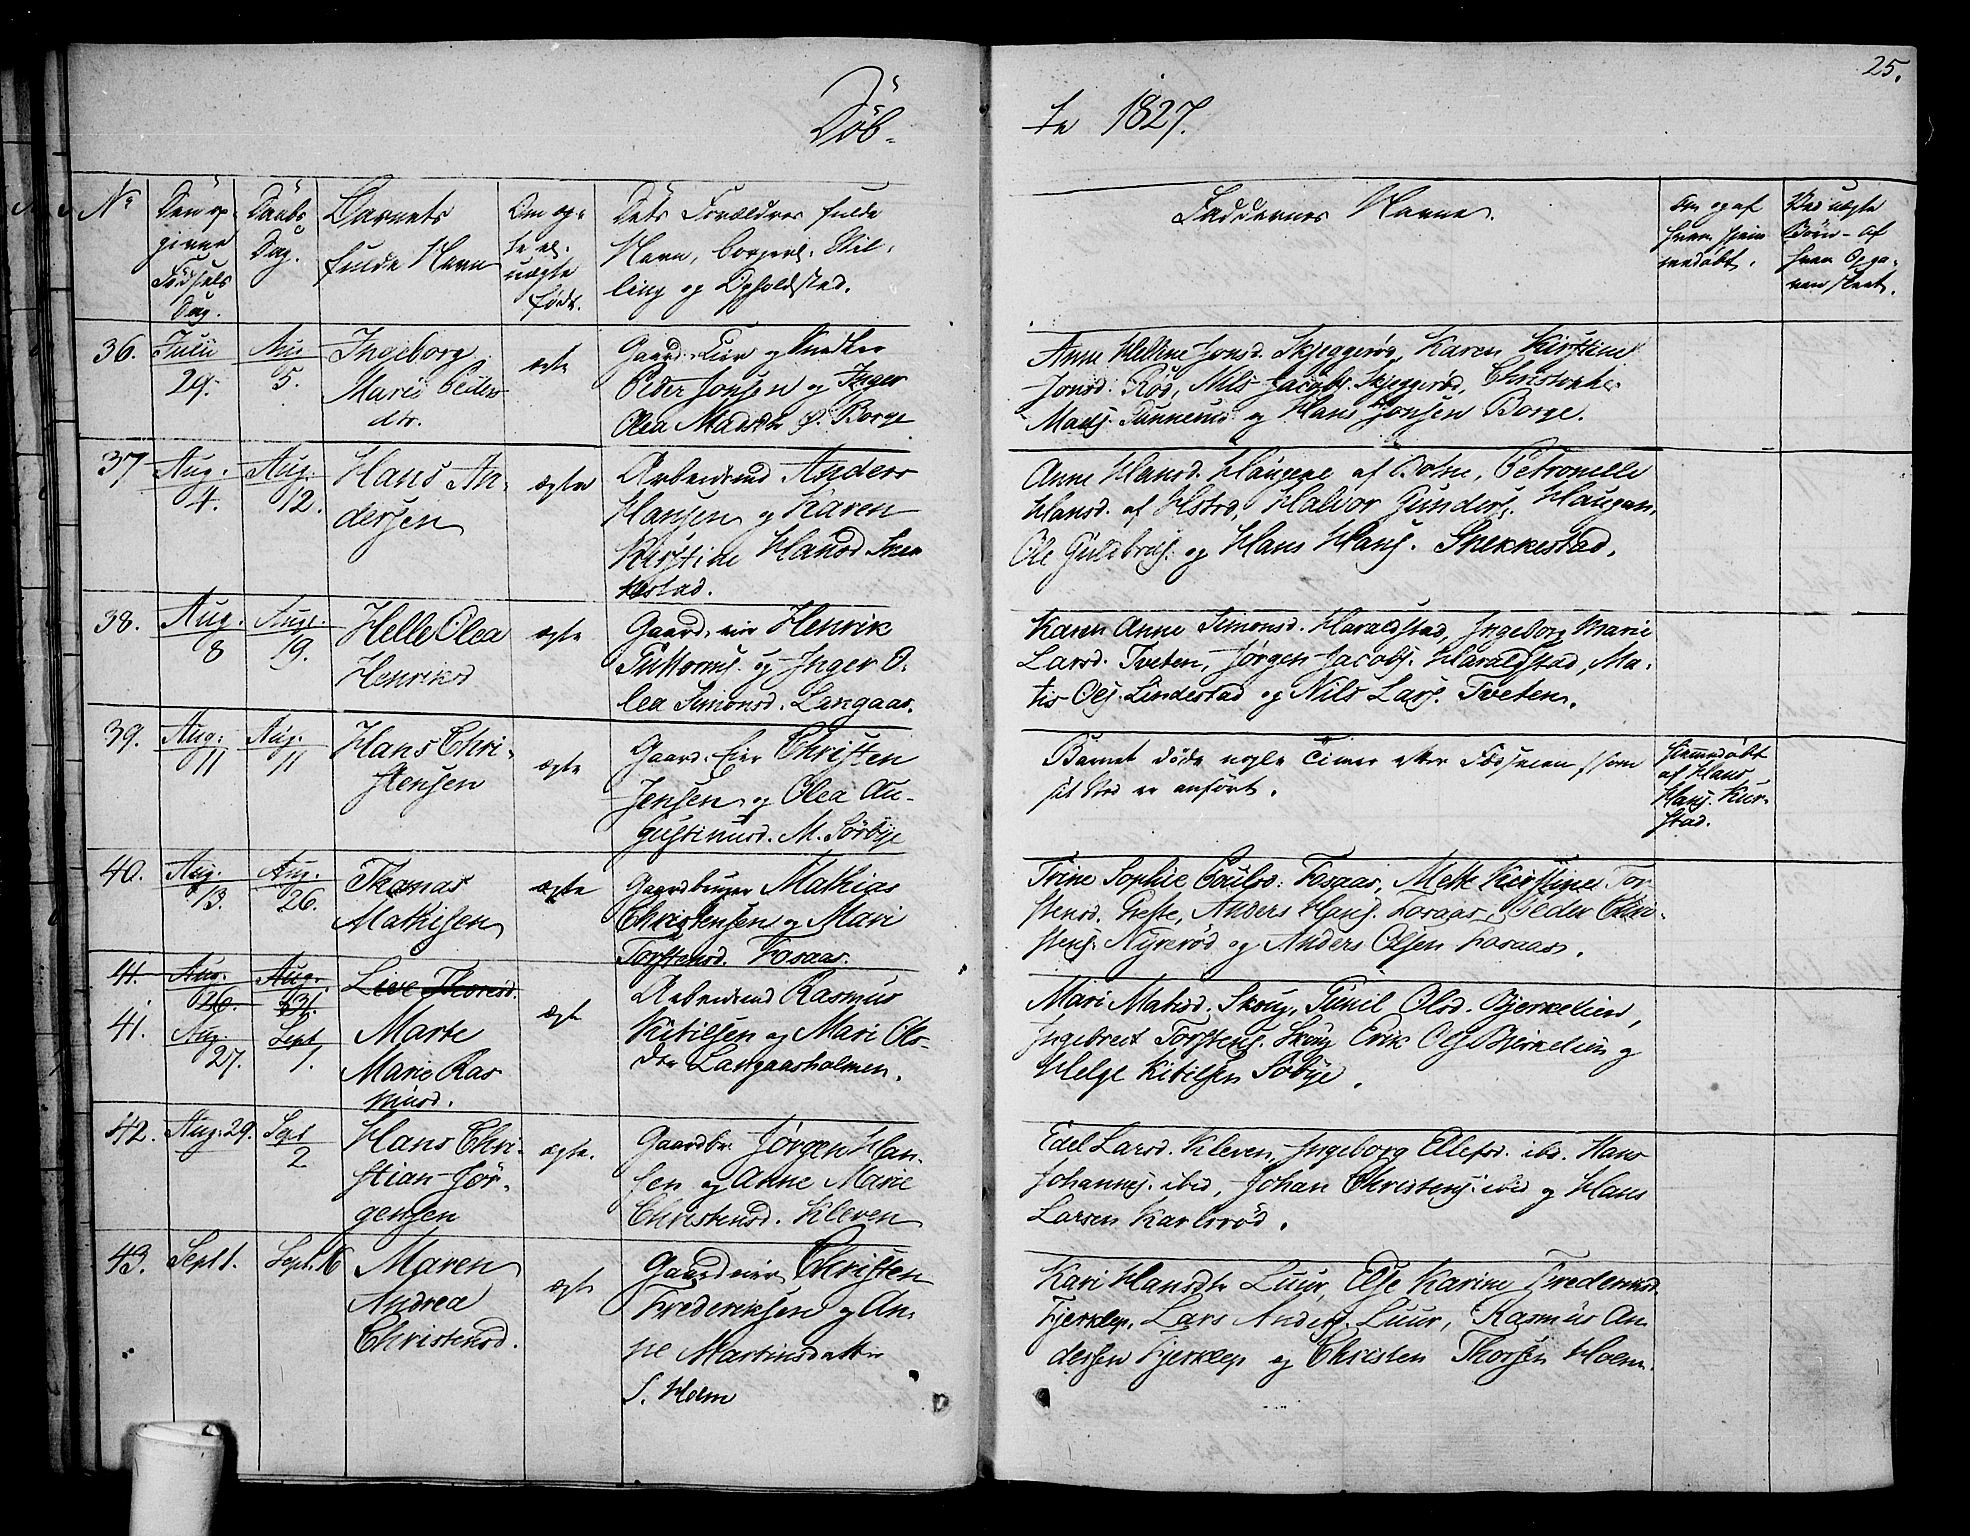 25.
Döb-
te 1827.
No
Den op-
givne
Födsels
Dag.
Daabs
Dag.
Barnets
fulde Navn
Om æg-
te el.
uægte
födt.
Dets Forældres fulde
Navn, borgerl. Stil-
ling og Opholdsted.
Faddernes Navne.
Om og af
hvem hjem
medøbt.
Ved uægte
Börn - af
hvem Opga-
ven skeet.
36.
Julii
29.
Aug
5.
Ingeborg
Marie Peders
dtr.
ægte
Gaard-Eier og Snedker
Peder Jonsen og Inger
Olea Madsdr Ø. Borge
Anne Helline Jonsd. Skjeggerød, Karen Kirstine
Jonsd. Rød, Nils Jacobs. Skjeggerød, Christopher
Mads. Sunnerud og Hans Jonsen Borge.
37
Aug.
4.
Aug.
12.
Hans An-
dersen
ægte
Arbeidsmd Anders
Hansen og Karen
Kirstine Hansd Snek
kestad.
Anne Hansd. Haugene af Botne, Petronelle
Hansd. af Hstrd, Halvor Gunders. Haugan,
Ole Guldbrds. og Hans Hans. Snekkestad.
38.
Aug.
8
Augs.
19.
Helle Olea
Henriksd
ægte
Gaard-eier Henrik
Guttorms. og Inger O-
lea Simonsd. Langaas.
Karen Anne Simonsd. Haraldstad, Ingeborg Marie
Larsd. Tveten, Jørgen Jacobs. Haraldstad, Ma-
tis Ols. Lindestad og Nils Lars. Tveten.
39.
Aug:
11
Aug.
11
Hans Chri-
stensen
ægte
Gaard-Eier Christen
Jensen og Olea Au-
gustinusd. M. Sørbye
Barnet døde nogle Timer efter Fødselen, som
sit Sted er anført.
Hiemmdøbt
af Hans
Hans. Kur-
stad.
40.
Aug.
13.
Aug.
26.
Thomas
Mathisen
ægte
Gaardbruger Mathias
Christensen og Mari
Torstensd. Fosaas.
Trine Sophie Poulsd: Fosaas, Mette Kirstine Tor
stensd. Greste, Anders Hans. Fosaas, Peder Chri-
stens. Nyrerød og Anders Olsen Fosaas.
41.
Aug.
26.
Aug.
31.
Live Thoresd.
41.
Aug.
27.
Sept
1.
Marte
Marie Ras
musd.
ægte
Arbeidsmd Rasmus
Kitilsen og Mari Ols-
dtr Langaasholmen.
Mari Matsd. Skoug, Gunil Olsd. Bjerkelien,
Ingebret Torstens. Skoug Erik Ols Bjerkelien og
Helge Kitilsen Søbye.
42.
Aug: 29.
Sept
2
Hans Chri-
stian Jør-
gensen
ægte.
Gaardbr. Jørgen Han-
sen og Anne Marie
Christensd. Kleven
Edel Larsd. Kleven, Ingeborg Ellefsd. ibd. Hans
Johannes. ibid, Johan Christens. ibid og Hans
Larsen Karlsrød.
43.
Sept 1.
Sept. 16
Maren
Andrea
Christensd.
ægte
Gaardeier Christen
Frederiksen og An-
ne Martinsdatter
S. Holm
Kari Hansdtr Luur, Else Karine Frederiksd.
Fjerklep, Lars Anders. Luur, Rasmus An
dersen Fjerklep og Christen Thorsen Holm.